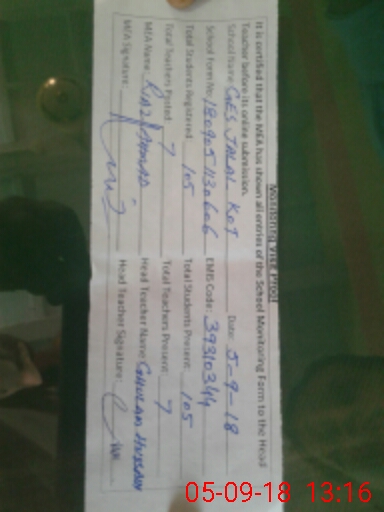 Monitoring Visit Proof
It is certified that the MEA has shown all entries of the School Monitoring Form to the Head
Teacher before its online submission.
School Name: GES JALAL KOT Date: 5-9-18
School Form No: 1809051130606 EMIS Code: 39310344
Total Students Registered: 105 Total Students Present: 105
Total Teachers Posted: 7 Total Teachers Present: 7
MEA Name: RIAZ AHMAD Head Teacher Name: GHULAM HUSSAIN
MEA Signature: Head Teacher Signature:
05-09-18 13:16